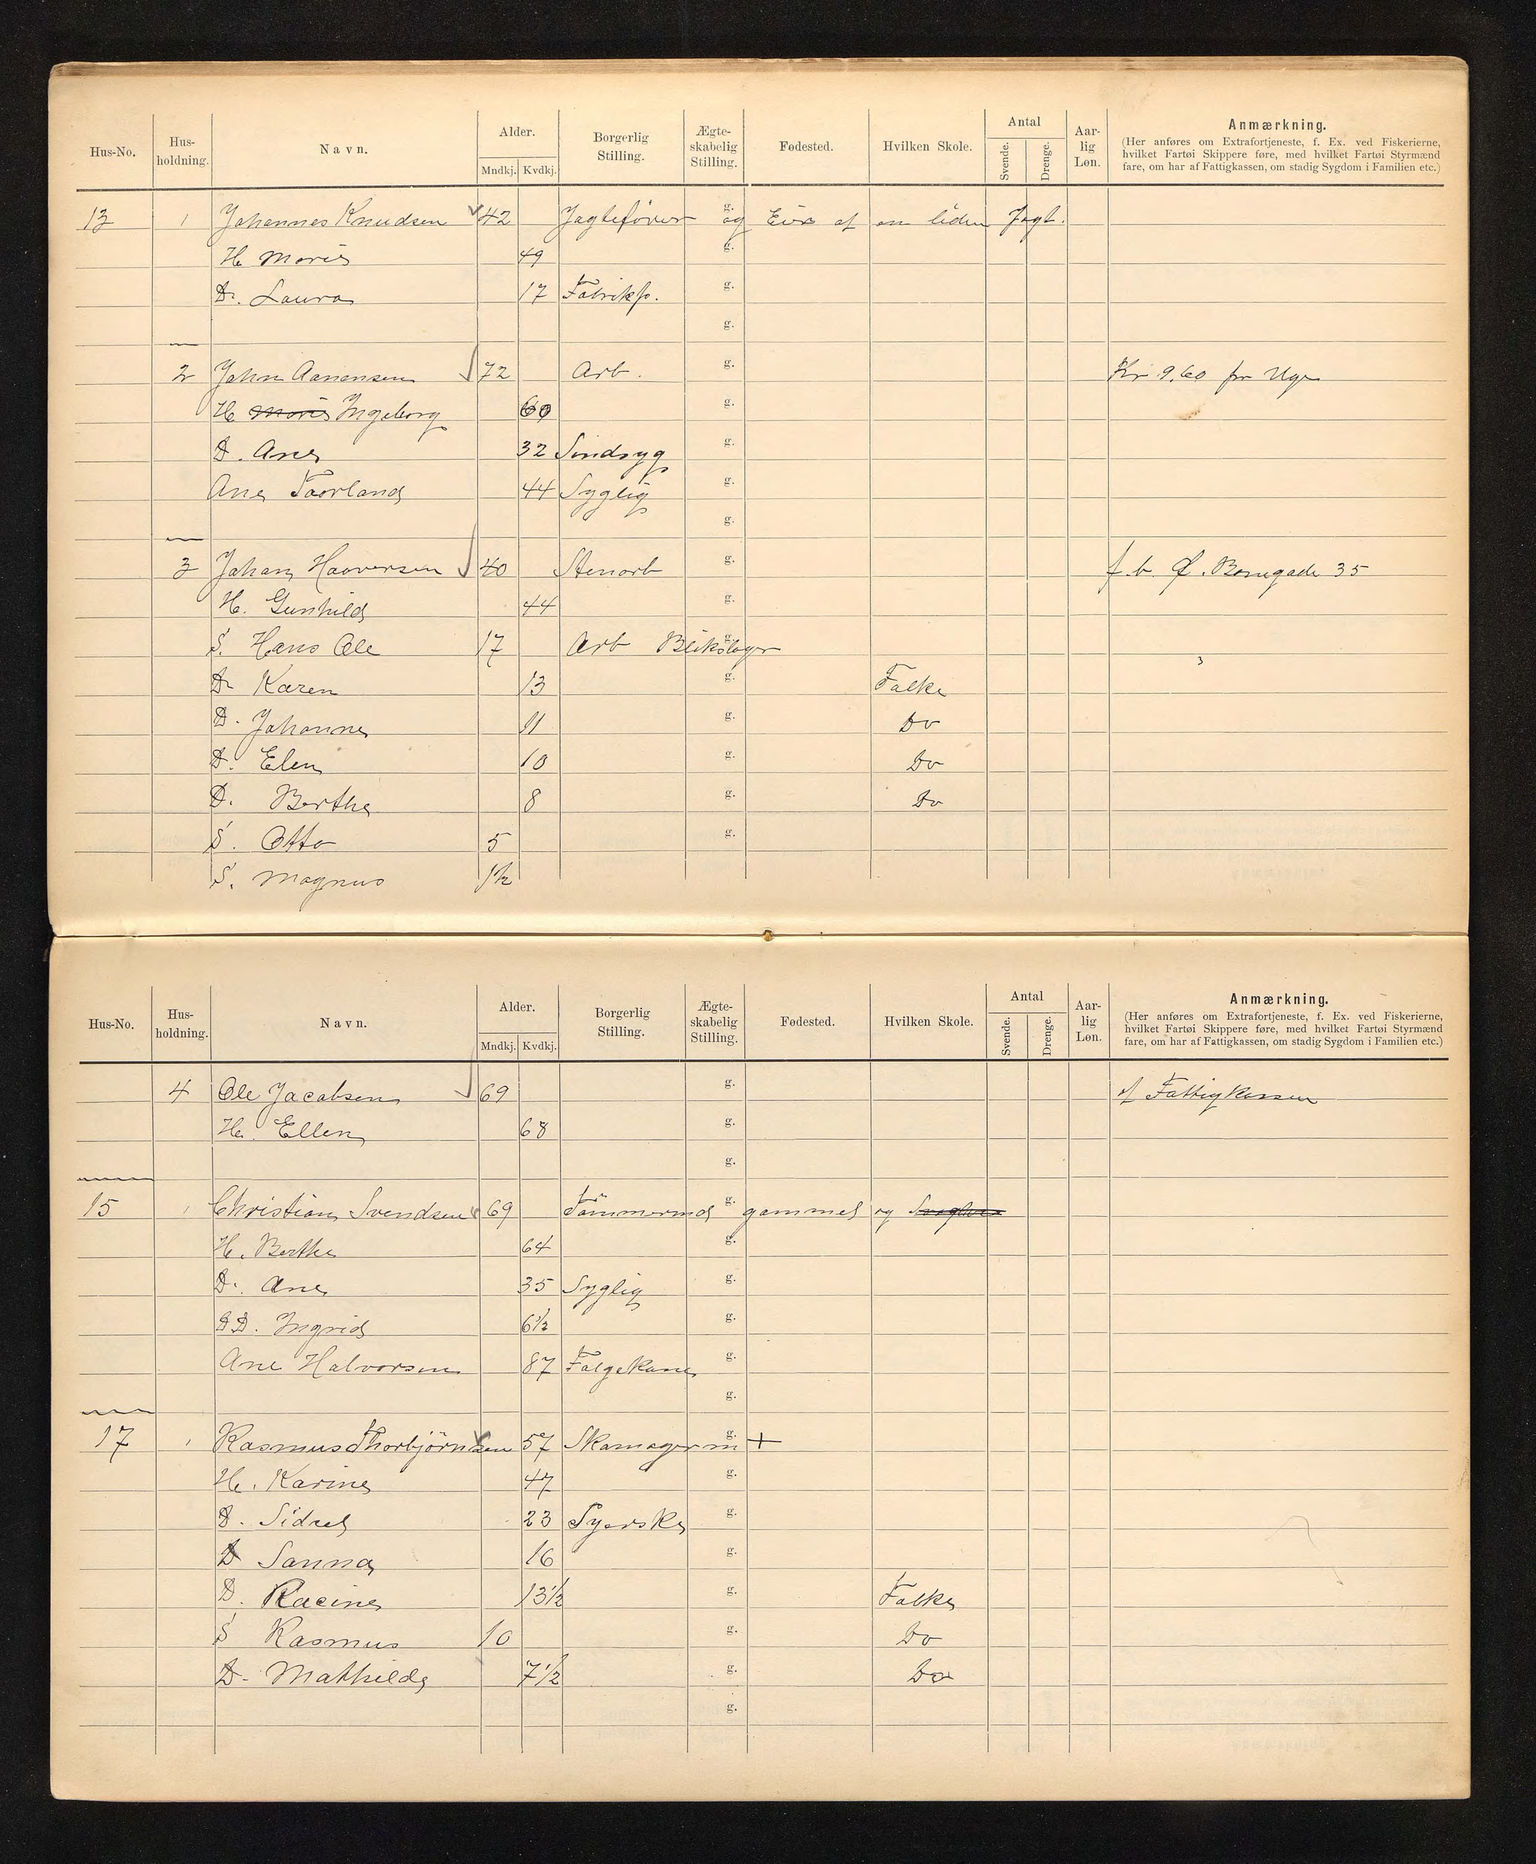 Hus-No. Hus-holdning. Navn. Alder. Mndkj. Kvdkj. Borgerlig Stilling. Ægte-skabelig Stilling. Fødested. Hvilken Skole. Antal Svende. Drenge. Aar-lig Løn. Anmærkning.
(Her anføres om Extrafortjeneste, f. Ex. ved Fiskerierne,
hvilket Fartøi Skippere føre, med hvilket Fartøi Styrmænd
fare, om har af Fattigkassen, om stadig Sygdom i Familien etc.)
13 1 Johannes Knudsen 42 Jagtefører g. og Eier af en liden Jagt.
H. Marie 49 g.
D. Laura 17 Fabrikp. g.
g.
2 John Aanensen 72 Arb. g. Kr 9.60 pr Uge
H. Marie Ingeborg 60 g.
D. Ane 32 Sindsyg g.
Ane Taarland 44 Syglig g.
g.
3 Johan Haaversen 40 Stenarb g. f. b. Ø. Banegade 35
H. Gunhild 44 g.
S. Hans Ole 17 Arb Blikslager g.
D. Karen 13 g. Folke
D. Johanne 11 g. Do
D. Elen 10 g. Do
D. Berthe 8 g. Do
S. Otto 5 g.
S. Magnus 1½
Hus-No. Hus-holdning. Navn. Alder. Mndkj. Kvdkj. Borgerlig Stilling. Ægte-skabelig Stilling. Fødested. Hvilken Skole. Antal Svende. Drenge. Aar-lig Løn. Anmærkning.
(Her anføres om Extrafortjeneste, f. Ex. ved Fiskerierne,
hvilket Fartøi Skippere føre, med hvilket Fartøi Styrmænd
fare, om har af Fattigkassen, om stadig Sygdom i Familien etc.)
4 Ole Jacobsen 69 g. af Fattigkassen
H. Ellen 68 g.
g.
15 1 Christian Svendsen 69 Tömmermd g. gammel og
H. Berthe 64 g.
D. Ane 35 Syglig g.
DD. Ingrid 6½ g.
Ane Halvorsen 87 Folgekone g.
g.
17 1 Rasmus Thorbjörnsen 57 Skomager m g. +
H. Karine 47 g.
D. Sidsel 23 Syerske g.
D Sanna 16 g.
D. Racine 13½ g. Folke
S Rasmus 10 g. Do
D. Mathilde 7½ g. Do
g.